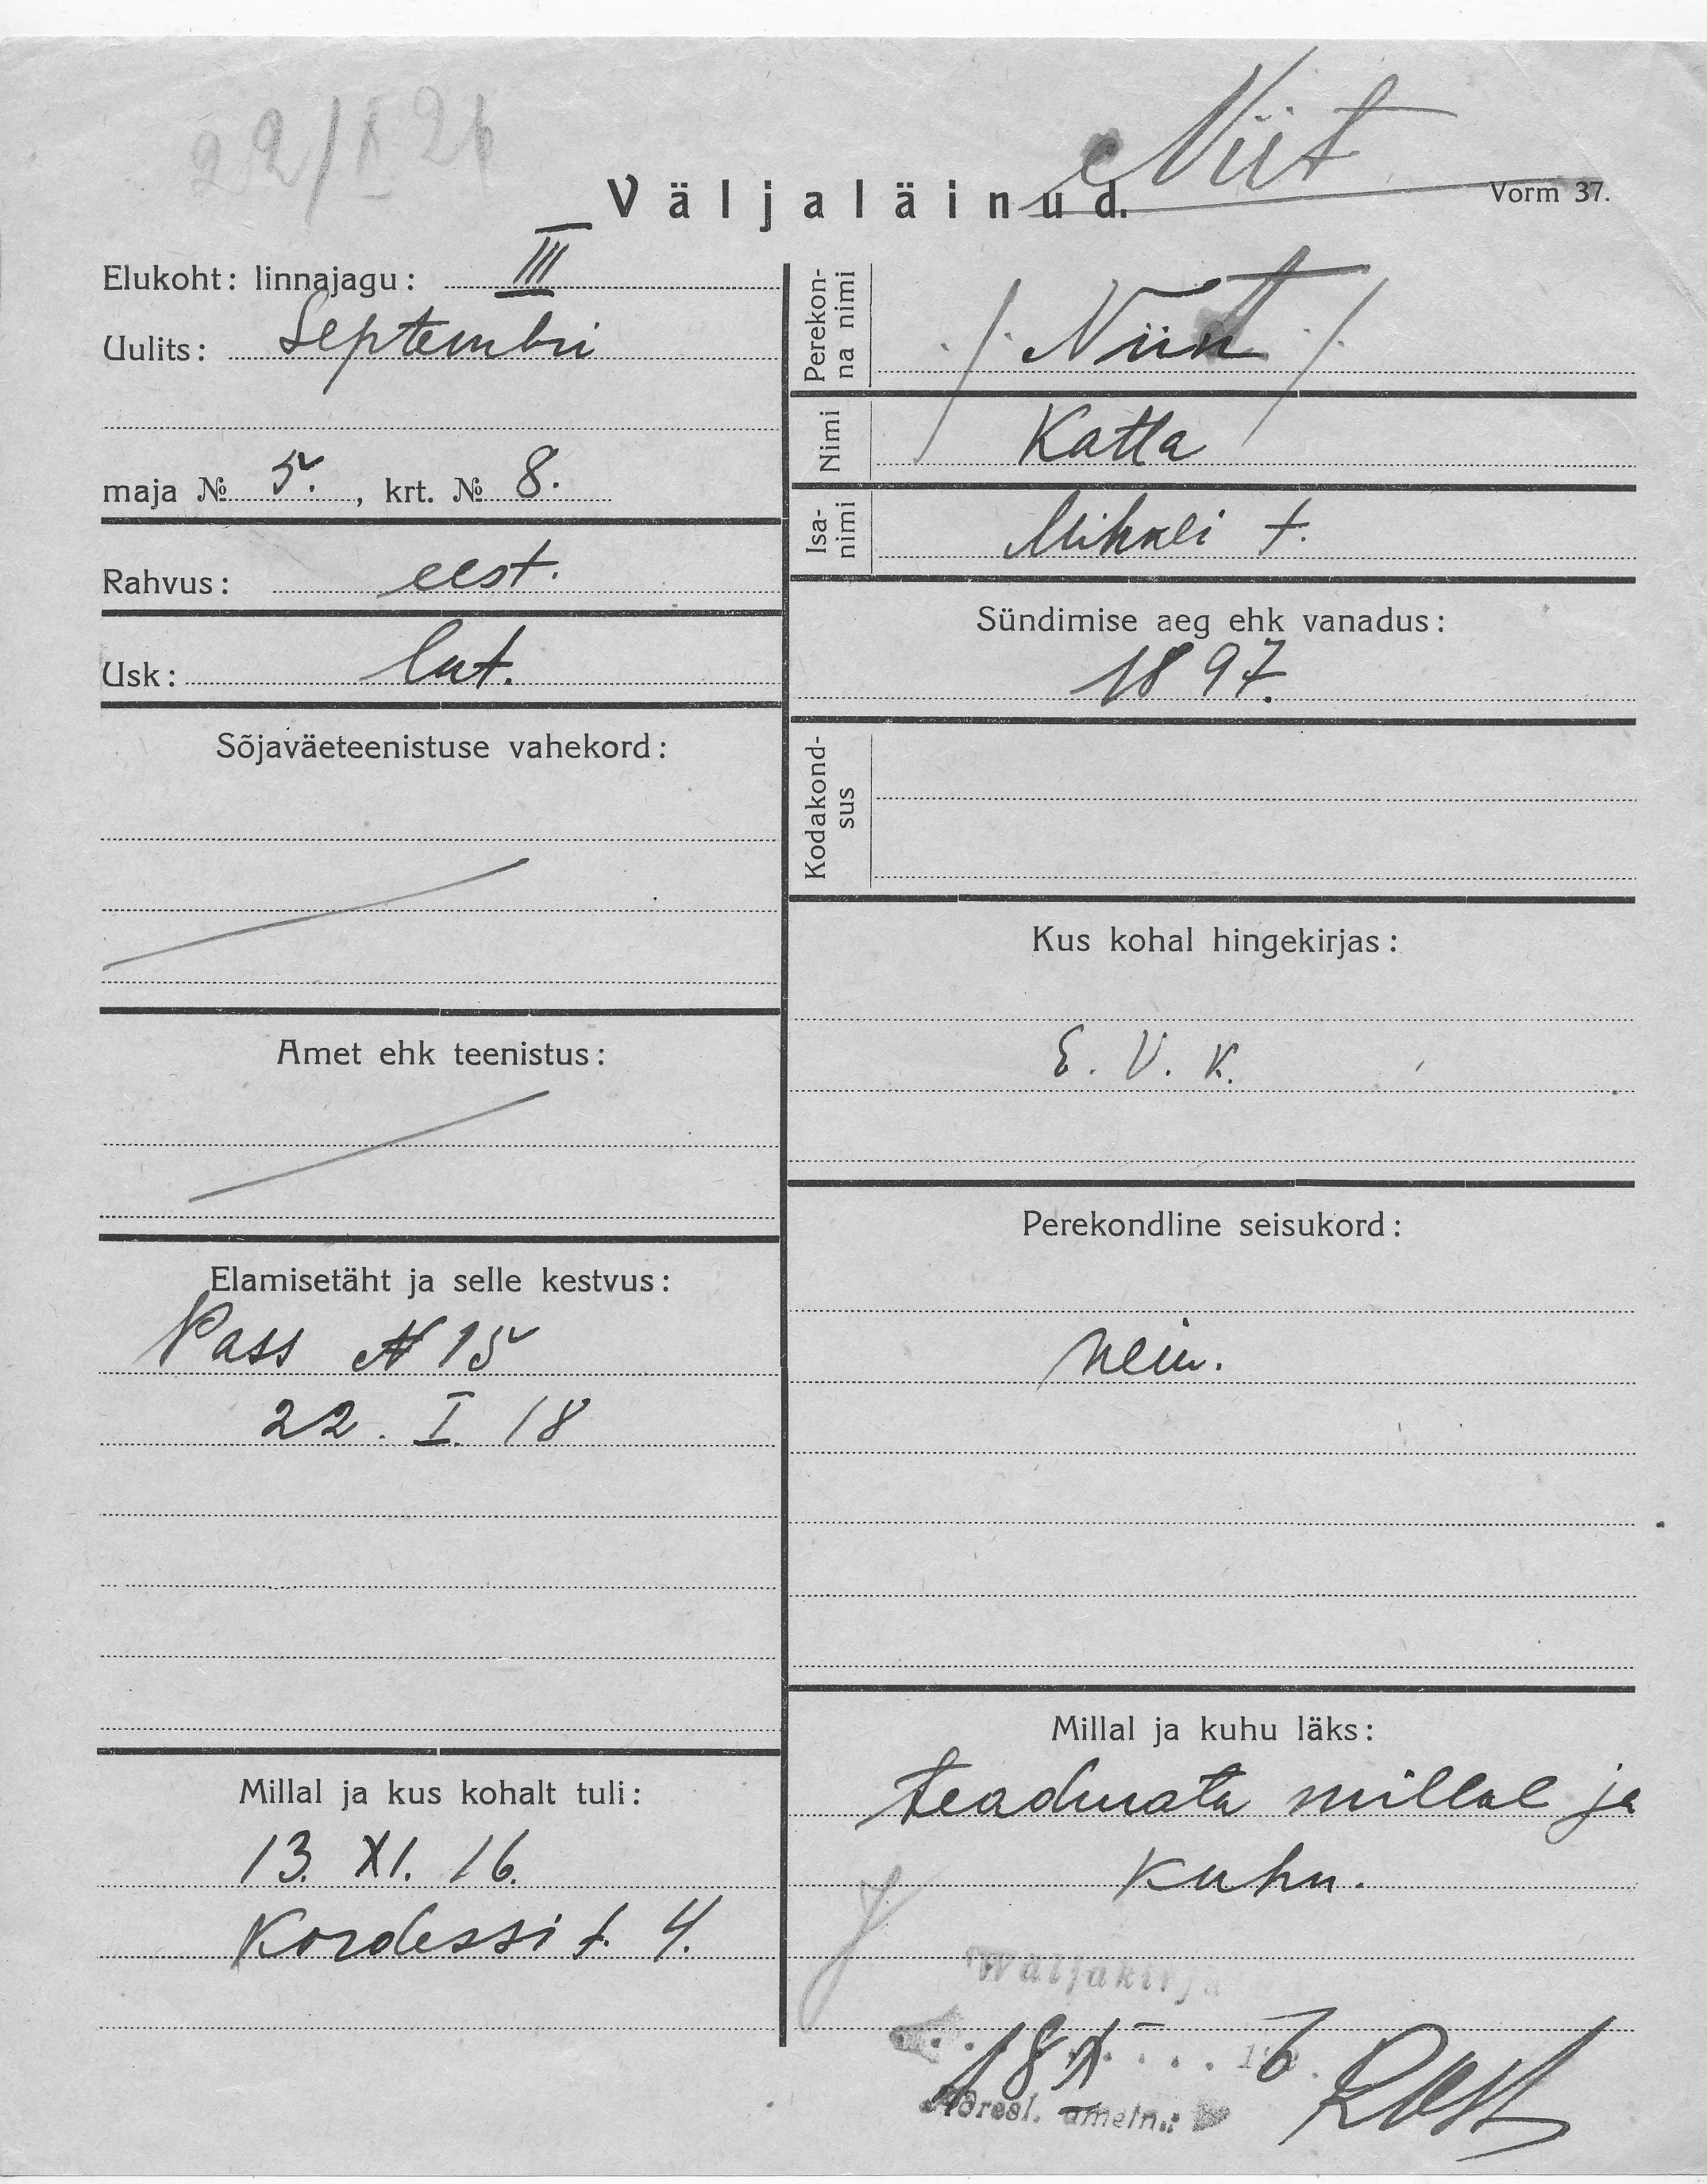 22/I 26
Niit
Väljaläinud.
Vorm 37.
Elukoht: linnajagu: III
Uulits: Septembri
maja № 5. , krt. № 8.
Rahvus: eest.
Usk: lut.
Sõjaväeteenistuse vahekord:
Amet ehk teenistus:
Elamisetäht ja selle kestvus:
Pass № 15
22. I. 18
Millal ja kus kohalt tuli:
13. XI. 16.
Kordessi t. 4.
Perekon-
na nimi
Niit
Nimi
Katta
Isa-
nimi
Mihkli t.
Sündimise aeg ehk vanadus:
1897.
Kodakond-
sus
Kus kohal hingekirjas:
E. V. K.
Perekondline seisukord:
neiu.
Millal ja kuhu läks:
teadmata millal ja
kuhu.
Wäljakirja
18 X 192 6
Adresl. ametn.: